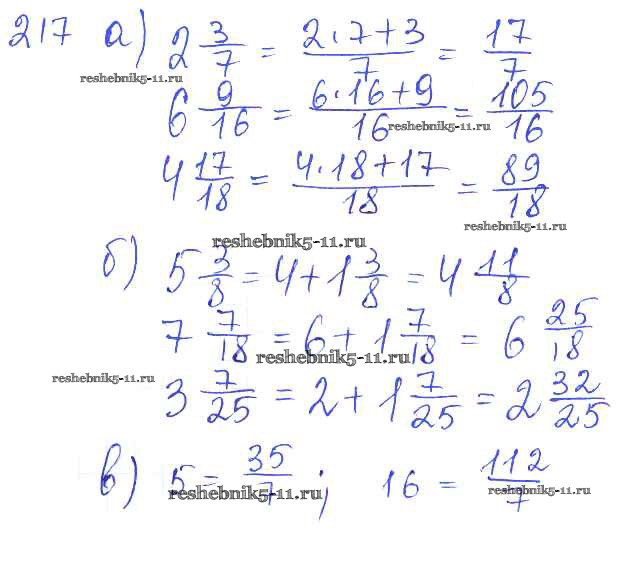 217 а) 2 3/7 = (2·7+3)/7 = 17/7
reshebnik5-11.ru
6 9/16 = (6·16+9)/16 = 105/16
reshebnik5-11.ru
4 17/18 = (4·18+17)/18 = 89/18
reshebnik5-11.ru
reshebnik5-11.ru
б) 5 3/8 = 4+1 3/8 = 4 11/8
7 7/18 = 6+1 7/18 = 6 25/18
reshebnik5-11.ru
reshebnik5-11.ru
3 7/25 = 2+1 7/25 = 2 32/25
в) 5 = 35/7; 16 = 112/7
reshebnik5-11.ru
reshebnik5-11.ru